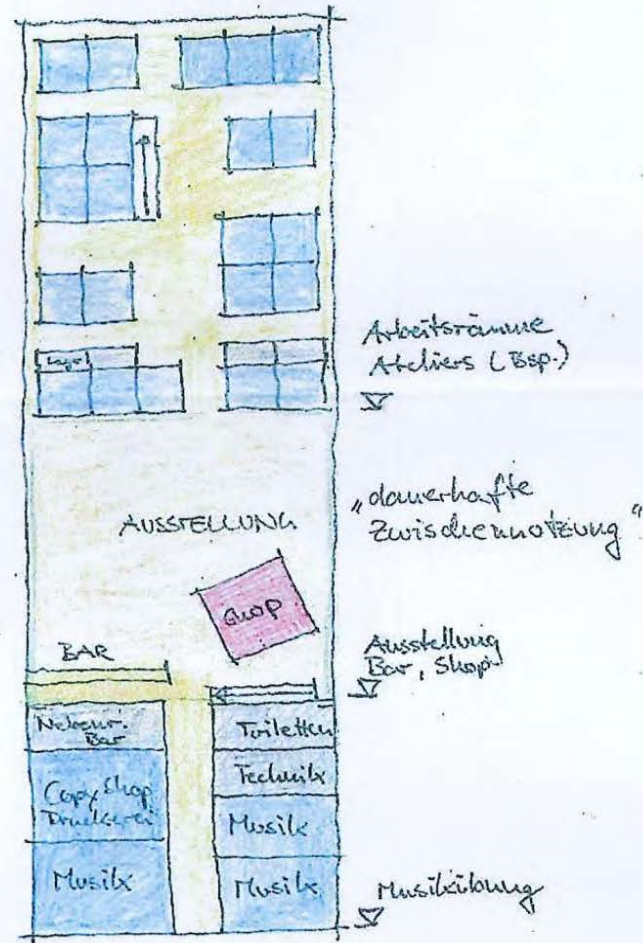 Arbeitsräume
Ateliers (Bsp.)
„dauerhafte
Zwischennutzung“
AUSSTELLUNG
SHOP
BAR
Ausstellung
Bar, Shop
Nebenr.
Bar
Toiletten
Technik
Copy Shop
Druckerei
Musik
Musik
Musik
Musikübung